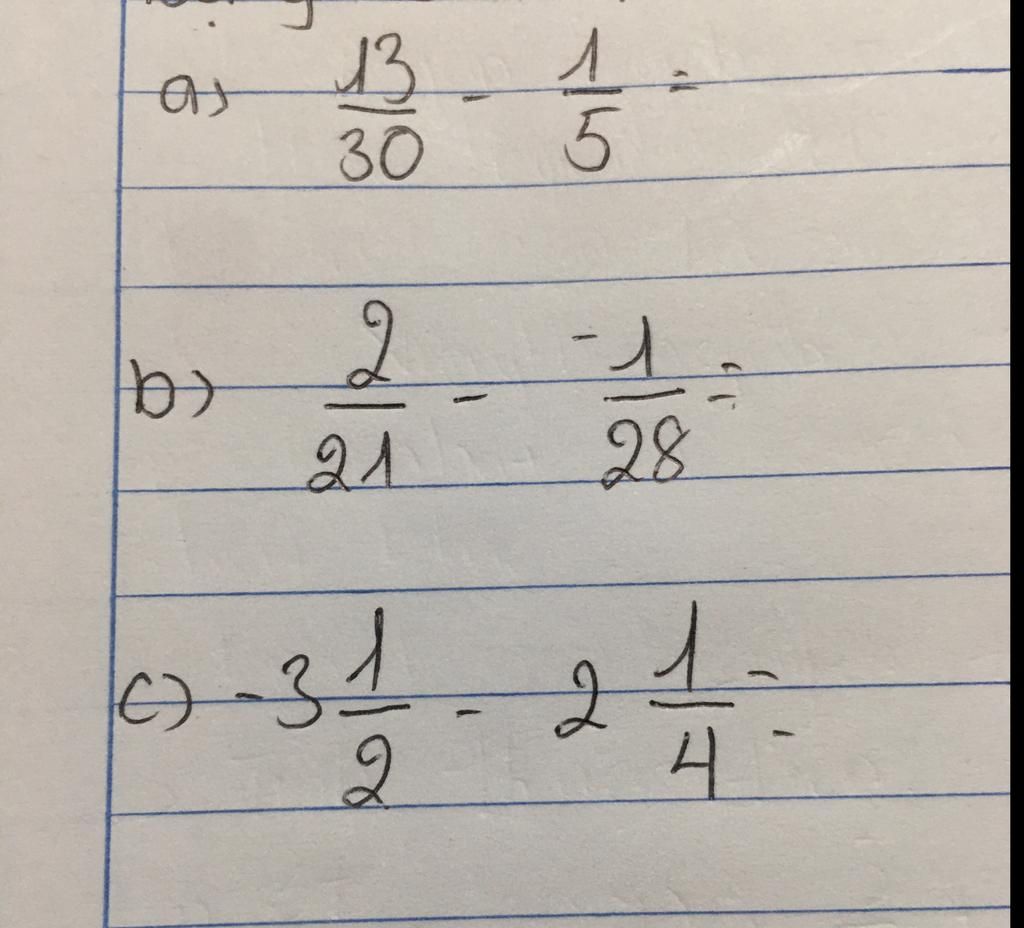 a) 13/30 - 1/5 =
b) 2/21 - -1/28 =
c) -3 1/2 - 2 1/4 =